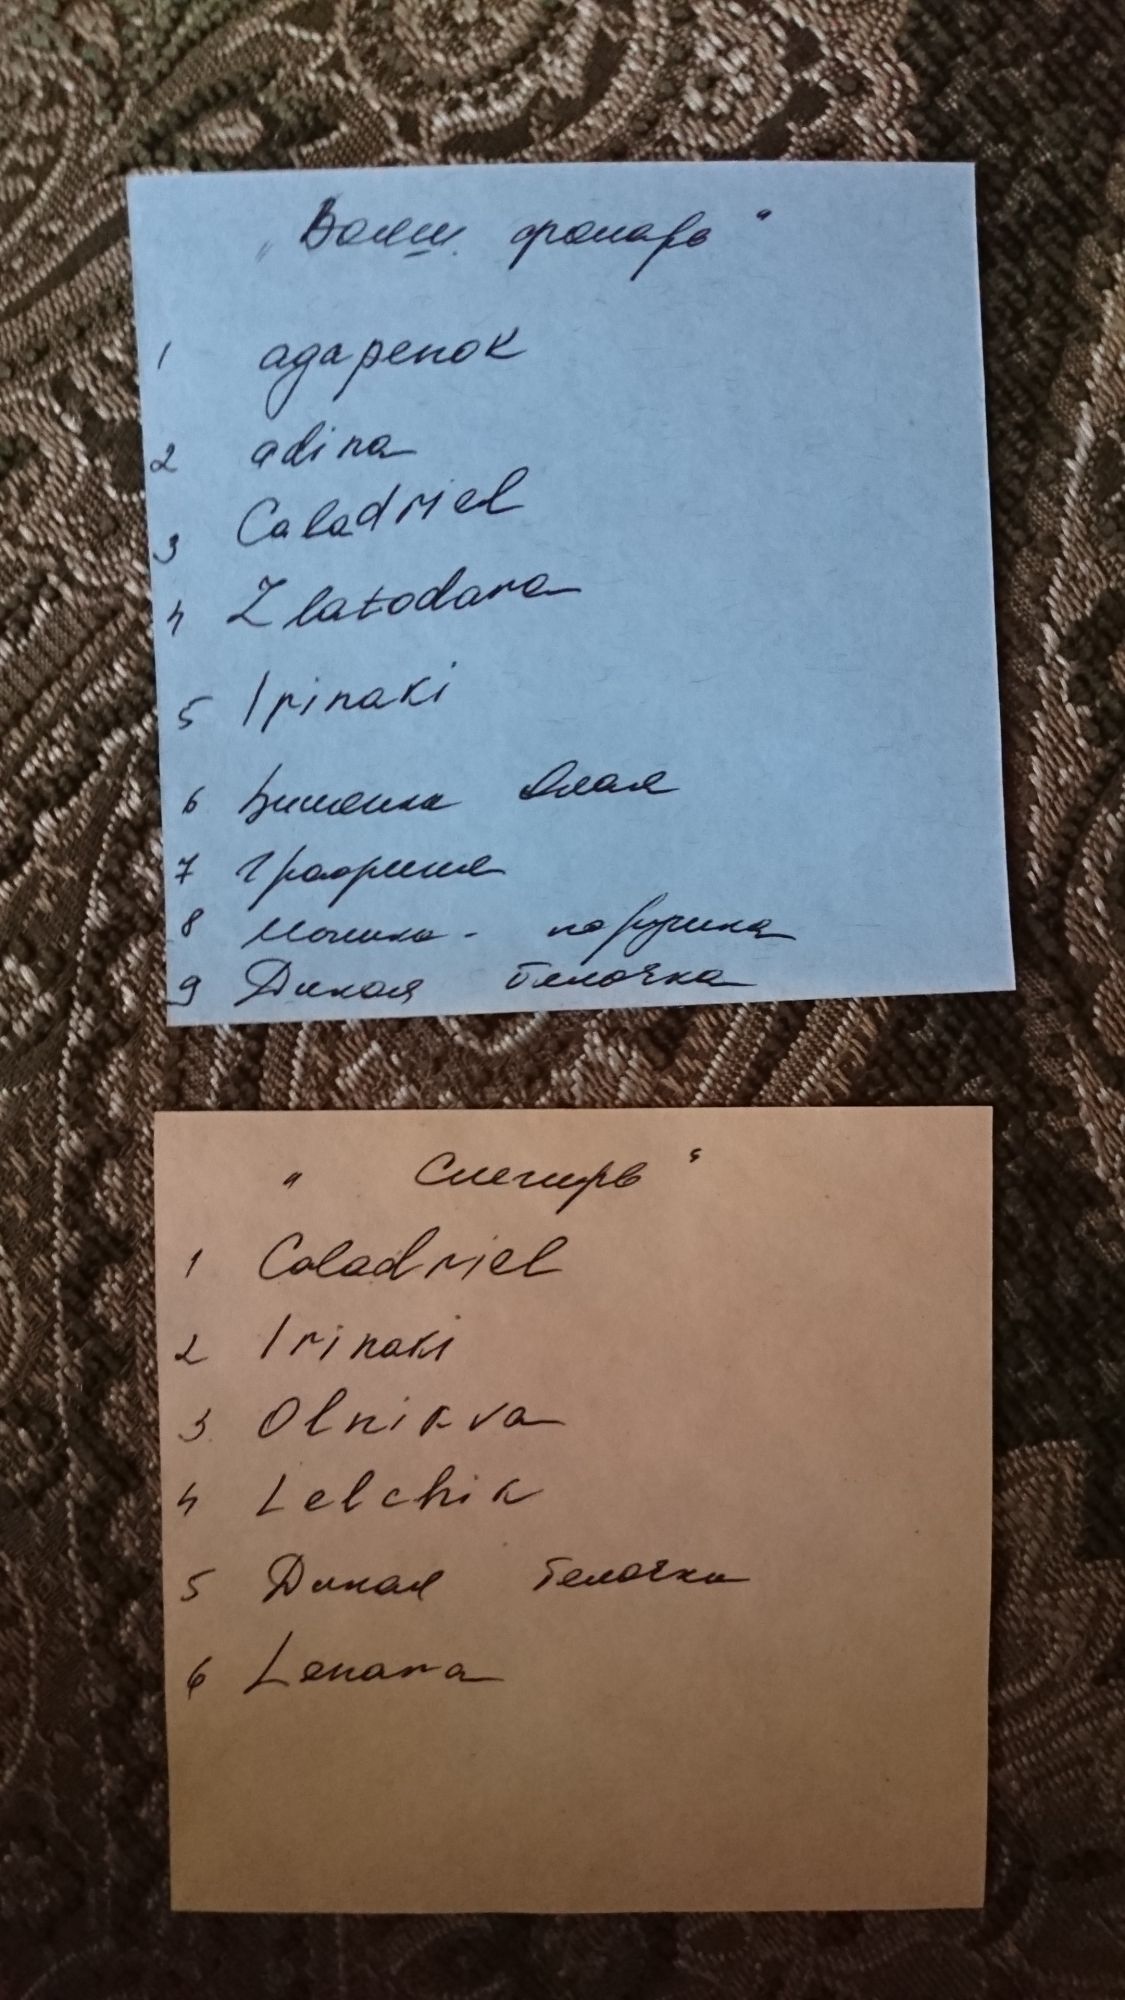 "Волш. фонарь"
1 агаренок
2 adina
3 Caladriel
4 Zlatodara
5 Irinaki
6 Вишенка Алая
7 Графиня
8 Моника-
9 Дикая белочка
"Снегирь"
1 Caladriel
2 Irinaki
3 Olnikva
4 Lelchik
5 Дикая белочка
6 Lenara